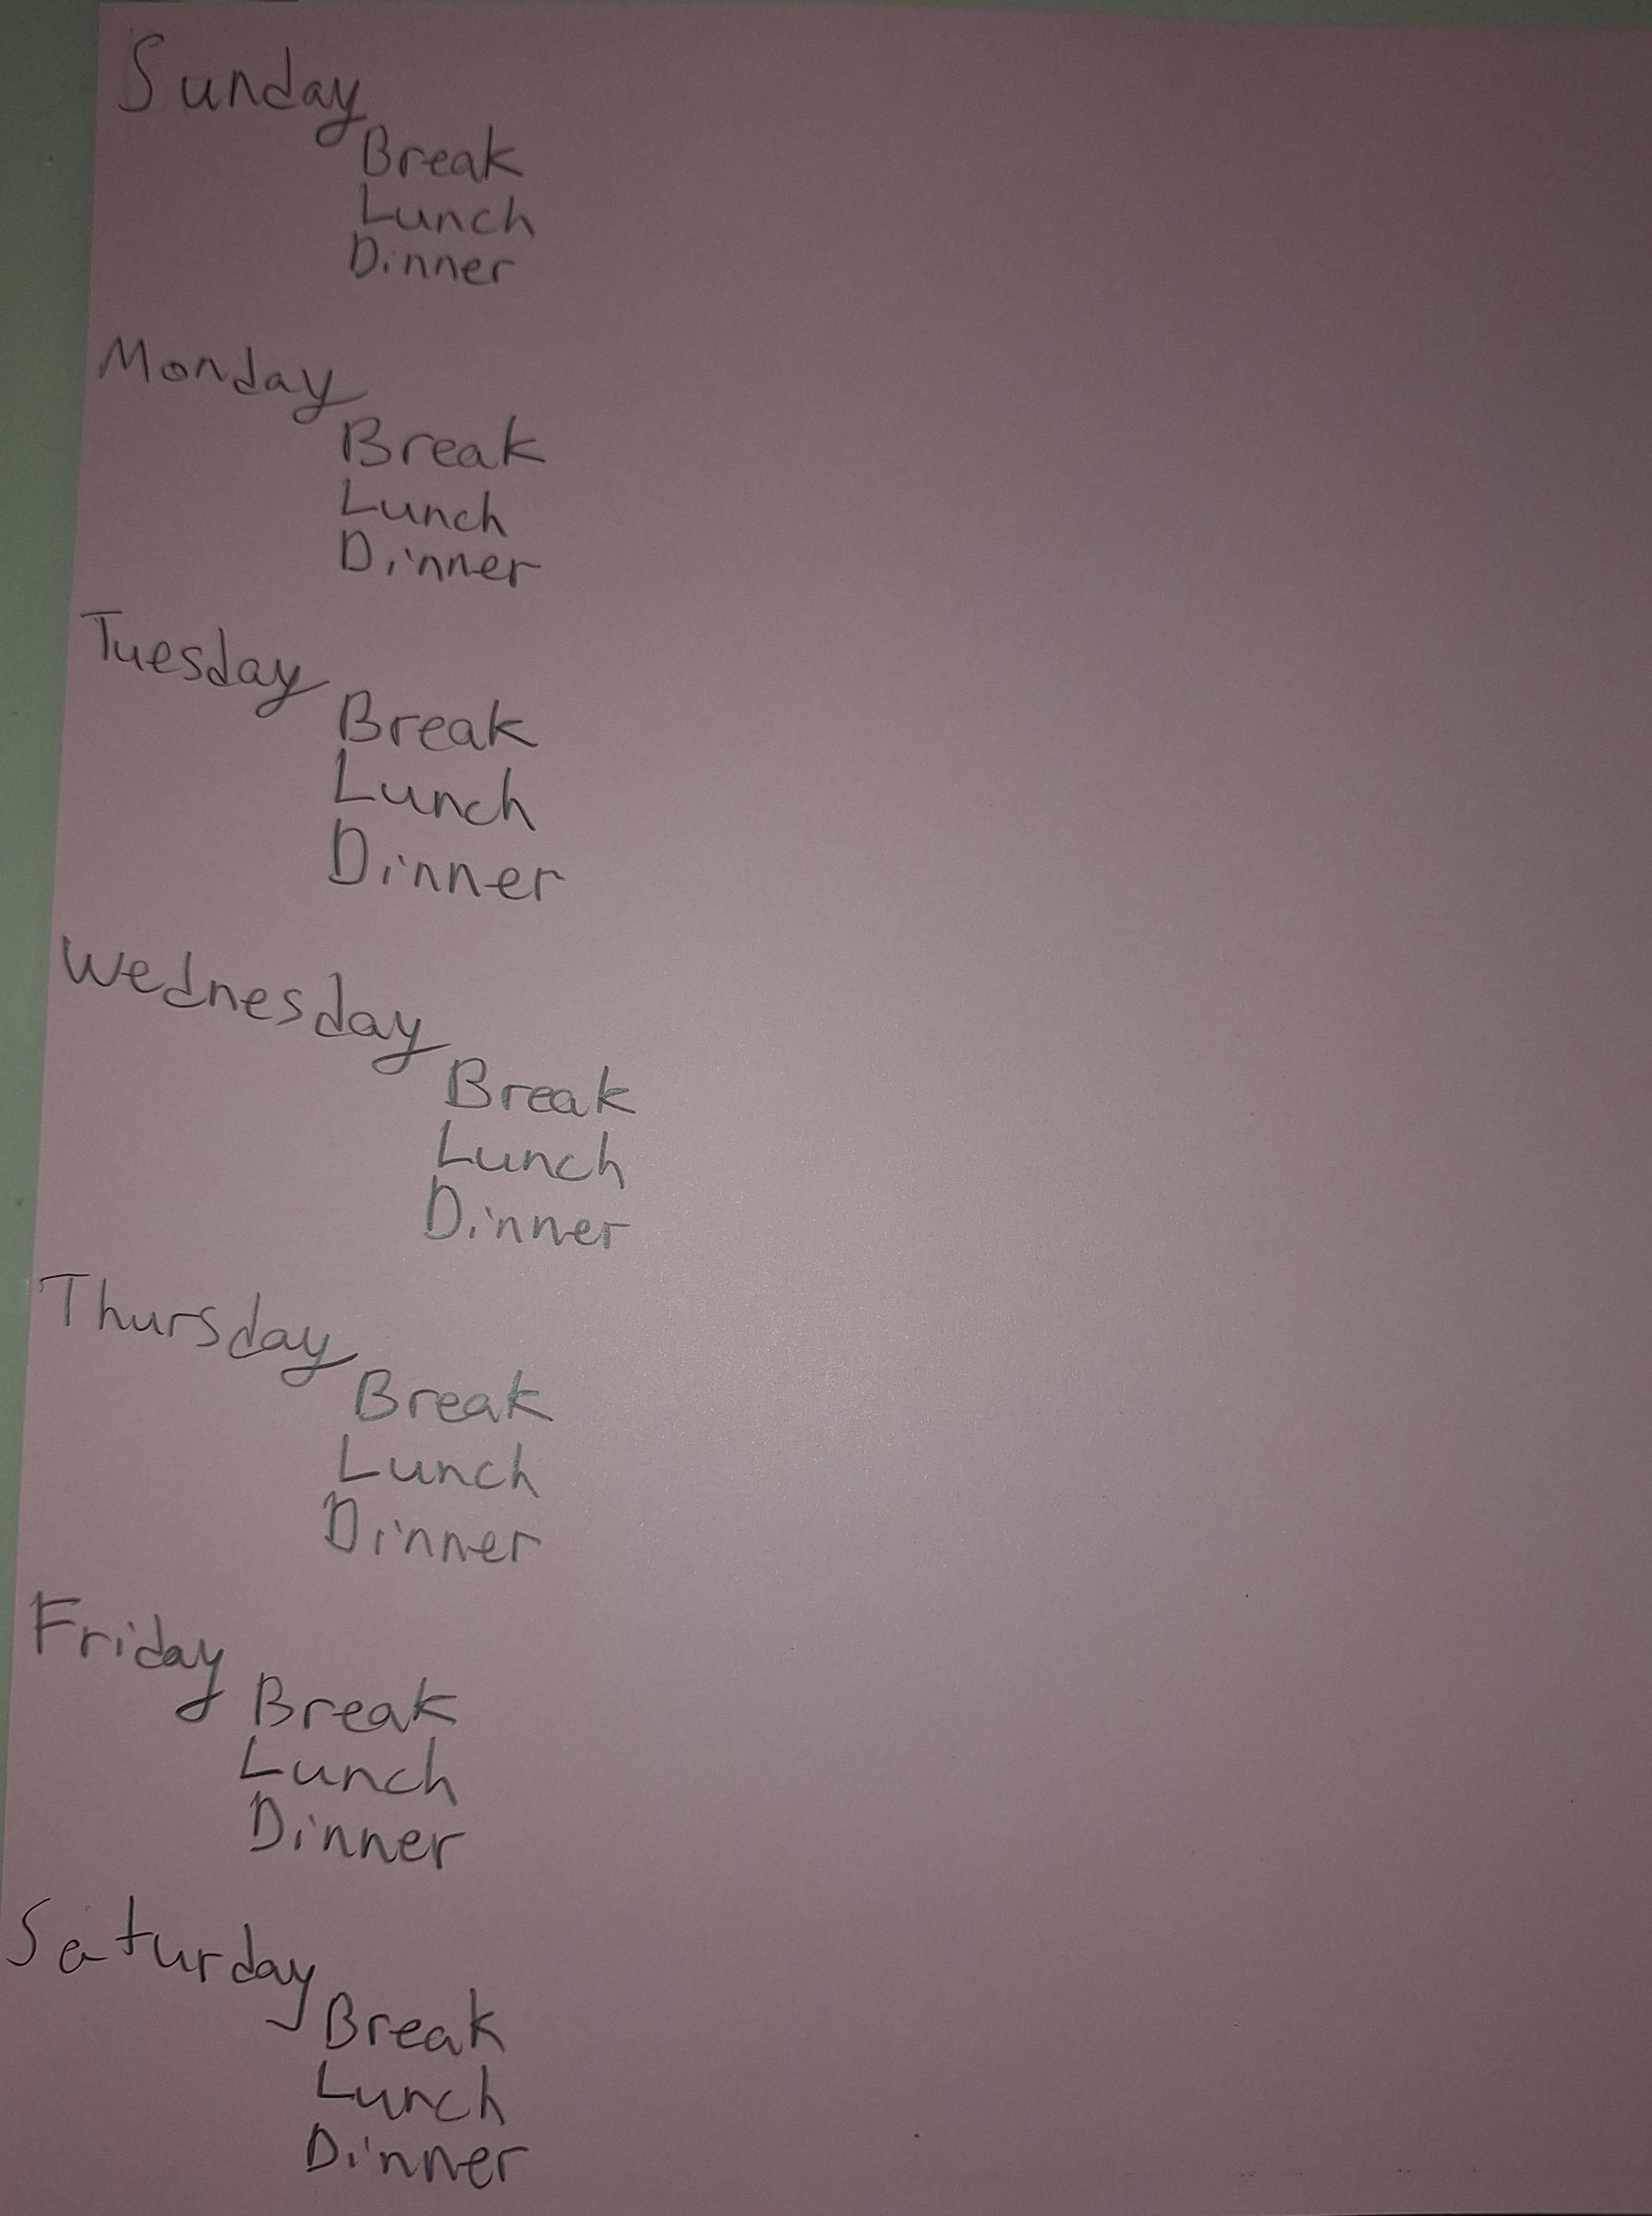 Sunday
Break
Lunch
Dinner
Monday
Break
Lunch
Dinner
Tuesday
Break
Lunch
Dinner
Wednesday
Break
Lunch
Dinner
Thursday
Break
Lunch
Dinner
Friday
Break
Lunch
Dinner
Saturday
Break
Lunch
Dinner